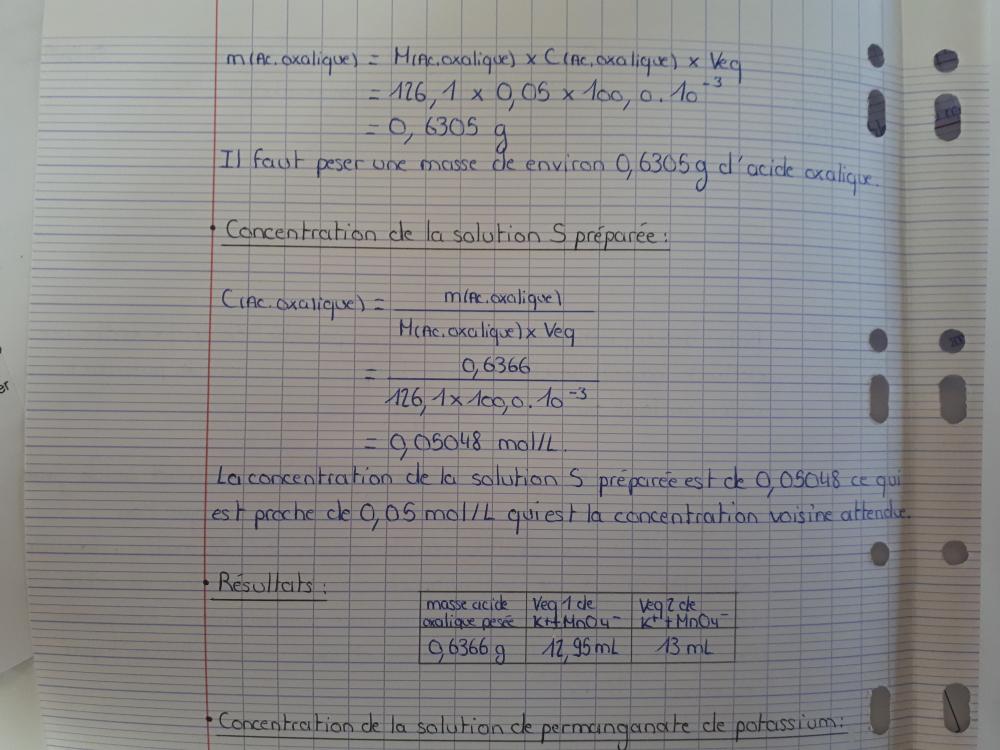 m(Ac.oxalique) = M(Ac.oxalique) x C(Ac.oxalique) x Veq
= 126,1 x 0,05 x 100,0.10⁻³
= 0,6305 g
Il faut peser une masse de environ 0,6305g d'acide oxalique.
• Concentration de la solution S préparée :
C(Ac.oxalique) = m(Ac.oxalique)
M(Ac.oxalique) x Veq
= 0,6366
126,1 x 100,0.10⁻³
= 0,05048 mol/L.
La concentration de la solution S préparée est de 0,05048 ce qui
est proche de 0,05 mol/L qui est la concentration voisine attendue.
• Résultats :
masse acide oxalique pesée Veq 1 de K⁺+MnO₄⁻ Veq 2 de K⁺+MnO₄⁻
0,6366 g 12,95 mL 13 mL
• Concentration de la solution de permanganate de potassium :